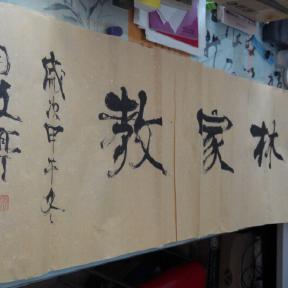 林家教
歲次甲午冬